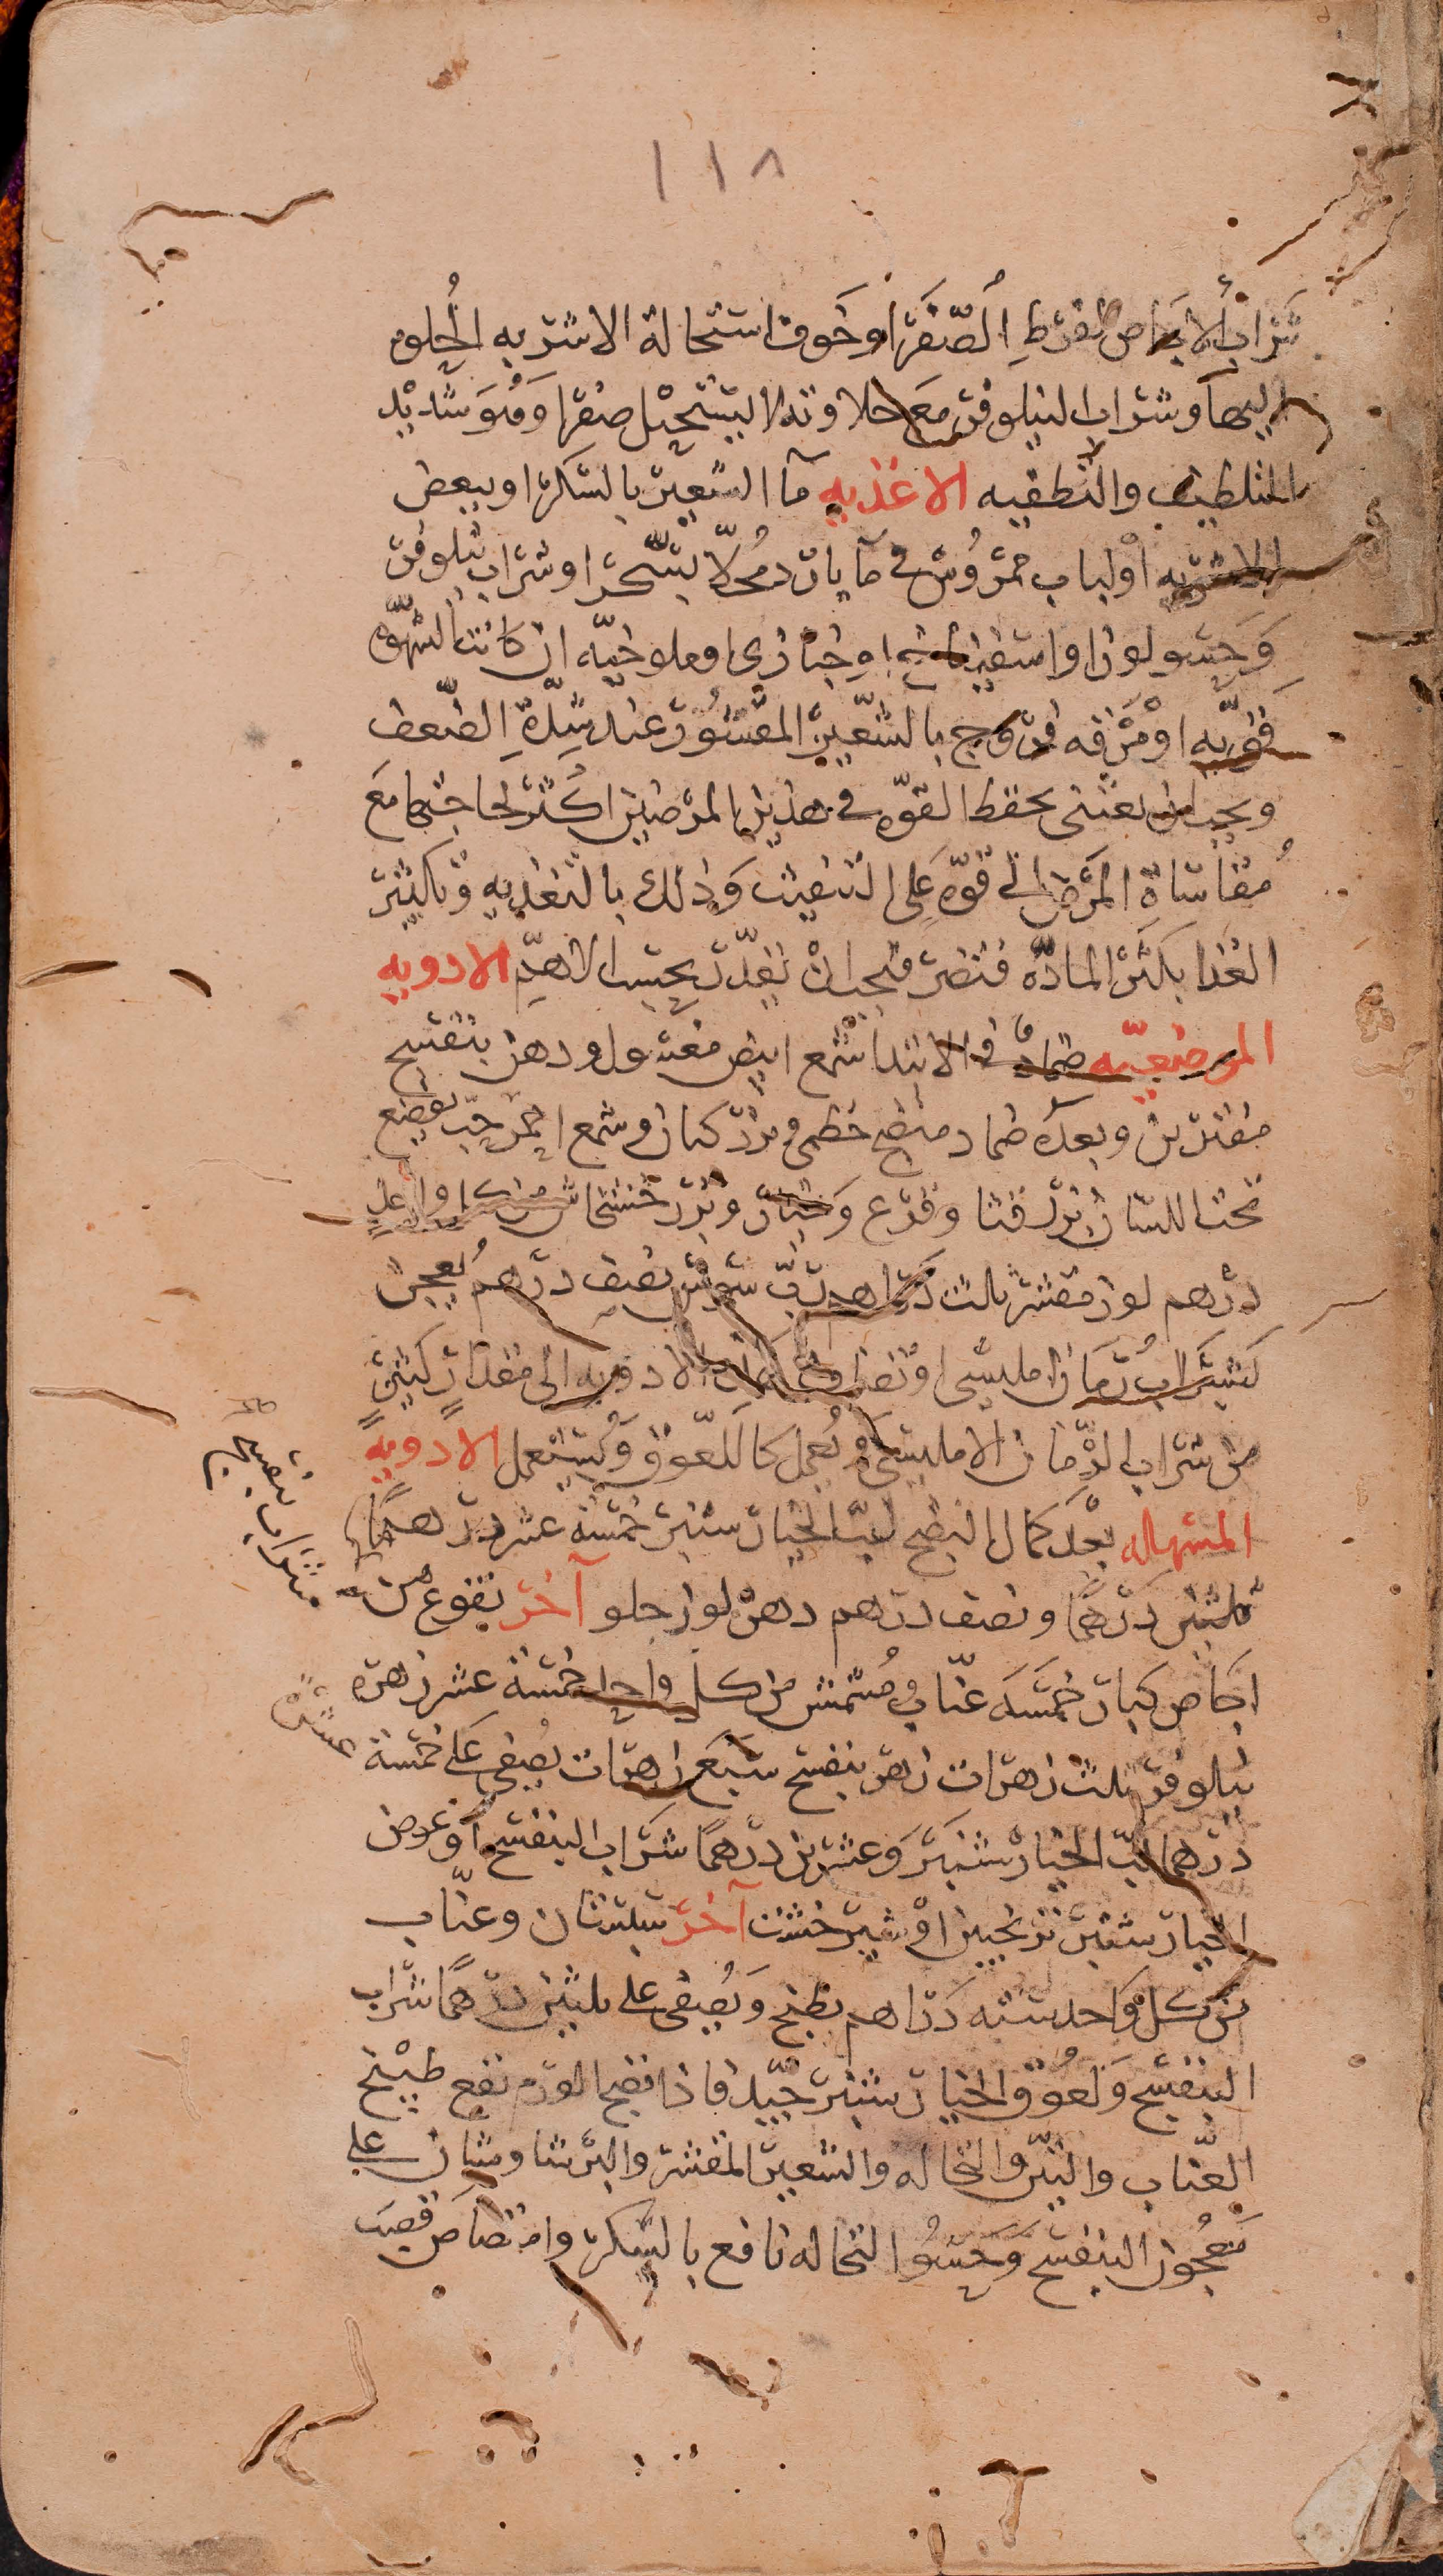 ١١٨
شراب الاجاص لفرط الصفرا وخوف استحالة الاشربه الحلوه
اليها وشراب لنيلوفر مع حلاوته لا يستحيل صفرا وهو شديد
التلطيف والتطفيه الاغذيه ما الشعير بالسكر او ببعض
الاشربه او لباب خبز ممروس في ما بارد محلا بسكر او شراب نيلوفر
وحسو لوز او اسفيناخ او خبازى او ملوخيه ان كانت الشهوه
قويه او مرقه فروج بالشعير المقشور عند شدة الضعف
ويجب ان يعتنى بحفظ القوه في هذين المرضين اكثر لحاجتهما مع
مقاساة المرض الى قوه على النفث وذلك بالتغذيه وتكثير
الغذا يكثر الماده فتضر فيجب ان يقدر بحسب الاهم الادويه
الموضعيه ضماد في الابتدا شمع ابيض مغسول ودهن بنفسج
مفترين وبعده ضماد منضج خطمى وبزر كتان وشمع احمر حب يوضع
تحت اللسان بزر قثا وقرع وخيار وبزر خشخاش من كل واحد
درهم لوز مقشر ثلث دراهم رب سوس نصف درهم يعجن
بشراب رمان امليسى او تضاف الادويه الى مقدار كثير
من شراب الرمان الامليسى ويجعل كاللعوق ويستعمل الادويه
المسهله بعد كمال النضج لب الخيار شنبر خمسة عشر درهما
ثلثين درهما ونصف درهم دهن لوز حلو آخر نقوع من
اجاص كبار خمسه عناب ومشمش من كل واحد خمسة عشر زهره
نيلوفر ثلث زهرات زهر بنفسج سبع زهرات يصفى على خمسة
درهما لب الخيار شنبر وعشرين درهما شراب البنفسج او عوض
الخيار شنبر ترنجبين او شير خشت آخر سبستان وعناب
من كل واحد سته دراهم يطبخ ويصفى على ثلثين درهما شراب
البنفسج ولعوق الخيار شنبر جيد فاذا نضج الورم نفع طبيخ
العناب والتين والنخاله والشعير المقشر والبرشاوشان على
معجون البنفسج وحسو النخاله نافع بالسكر وامتصاص قصب
شراب بنفسج
عشر